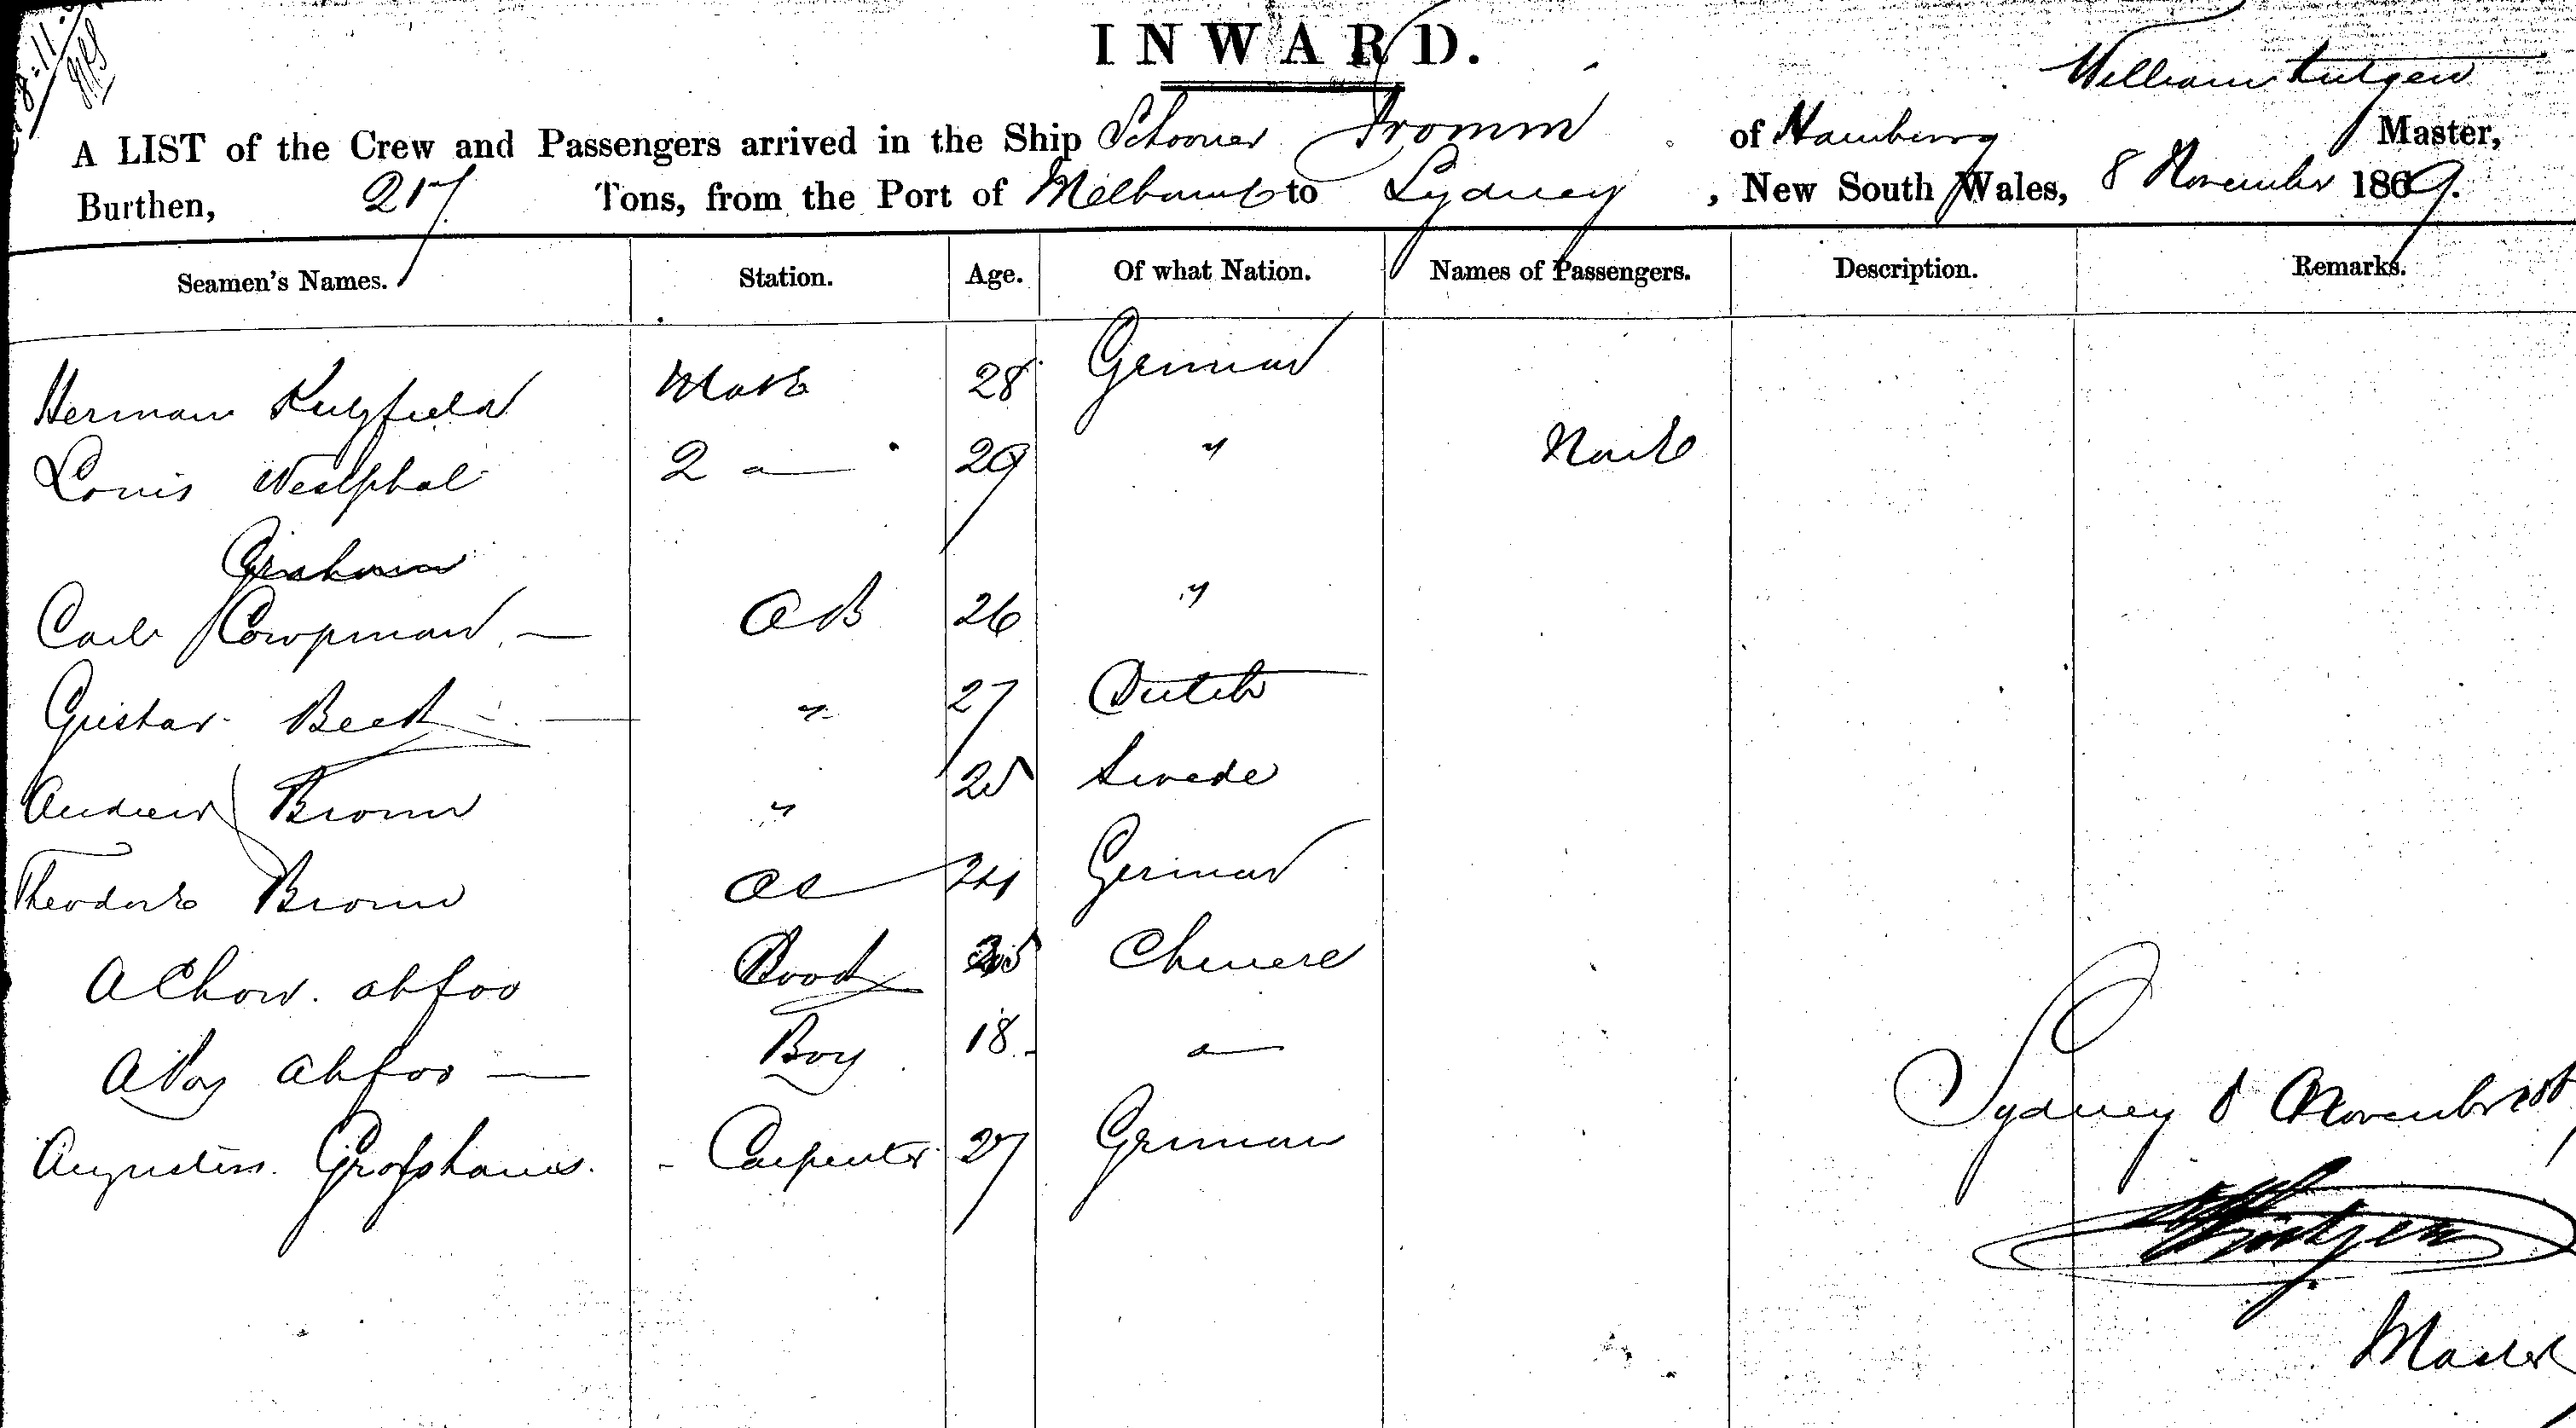 8.11.
INWARD.
William Lutgen
A LIST of the Crew and Passengers arrived in the Ship Schooner Fromm of Hamburg Master,
Burthen, 217 Tons, from the Port of Melbourne to Sydney, New South Wales, 8 November 1869.
Seamen's Names. Station. Age. Of what Nation. Names of Passengers. Description. Remarks.
Herman Mate 28 German
Louis Westphal 2 " 29 " None
Carl Cowpman — AB 26 "
Gustav Beck — " 27 Dutch
Andrew Brown " 25 Swede
Theodore Brown OS 24 German
AChow. ahfoo Cook 25 Chinese
ahfoo — Boy 18 "
Augustin. Grofshans. Carpenter 27 German
Sydney 8 November
Master